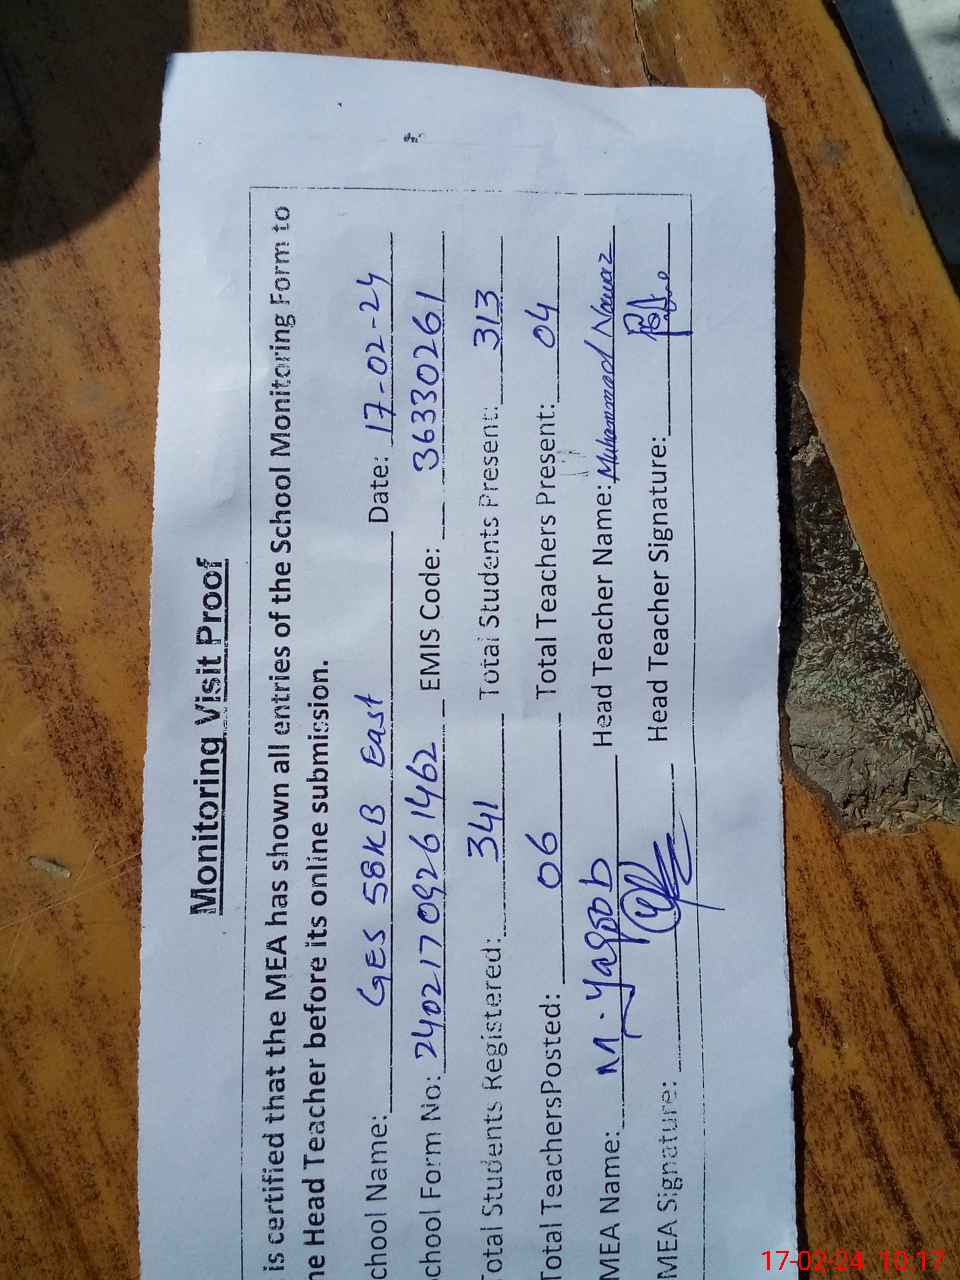 Monitoring Visit Proof
is certified that the MEA has shown all entries of the School Monitoring Form to
he Head Teacher before its online submission.
chool Name: GES 58KB East Date: 17-02-24
chool Form No: 240217 0926 1462 EMIS Code: 36330261
Total Students Registered: 341 Total Students Present: 313
Total TeachersPosted: 06 Total Teachers Present: 04
MEA Name: M. Yaqoob Head Teacher Name: Muhammad Nawaz
MEA Signature: Head Teacher Signature:
17-02-24 10:17